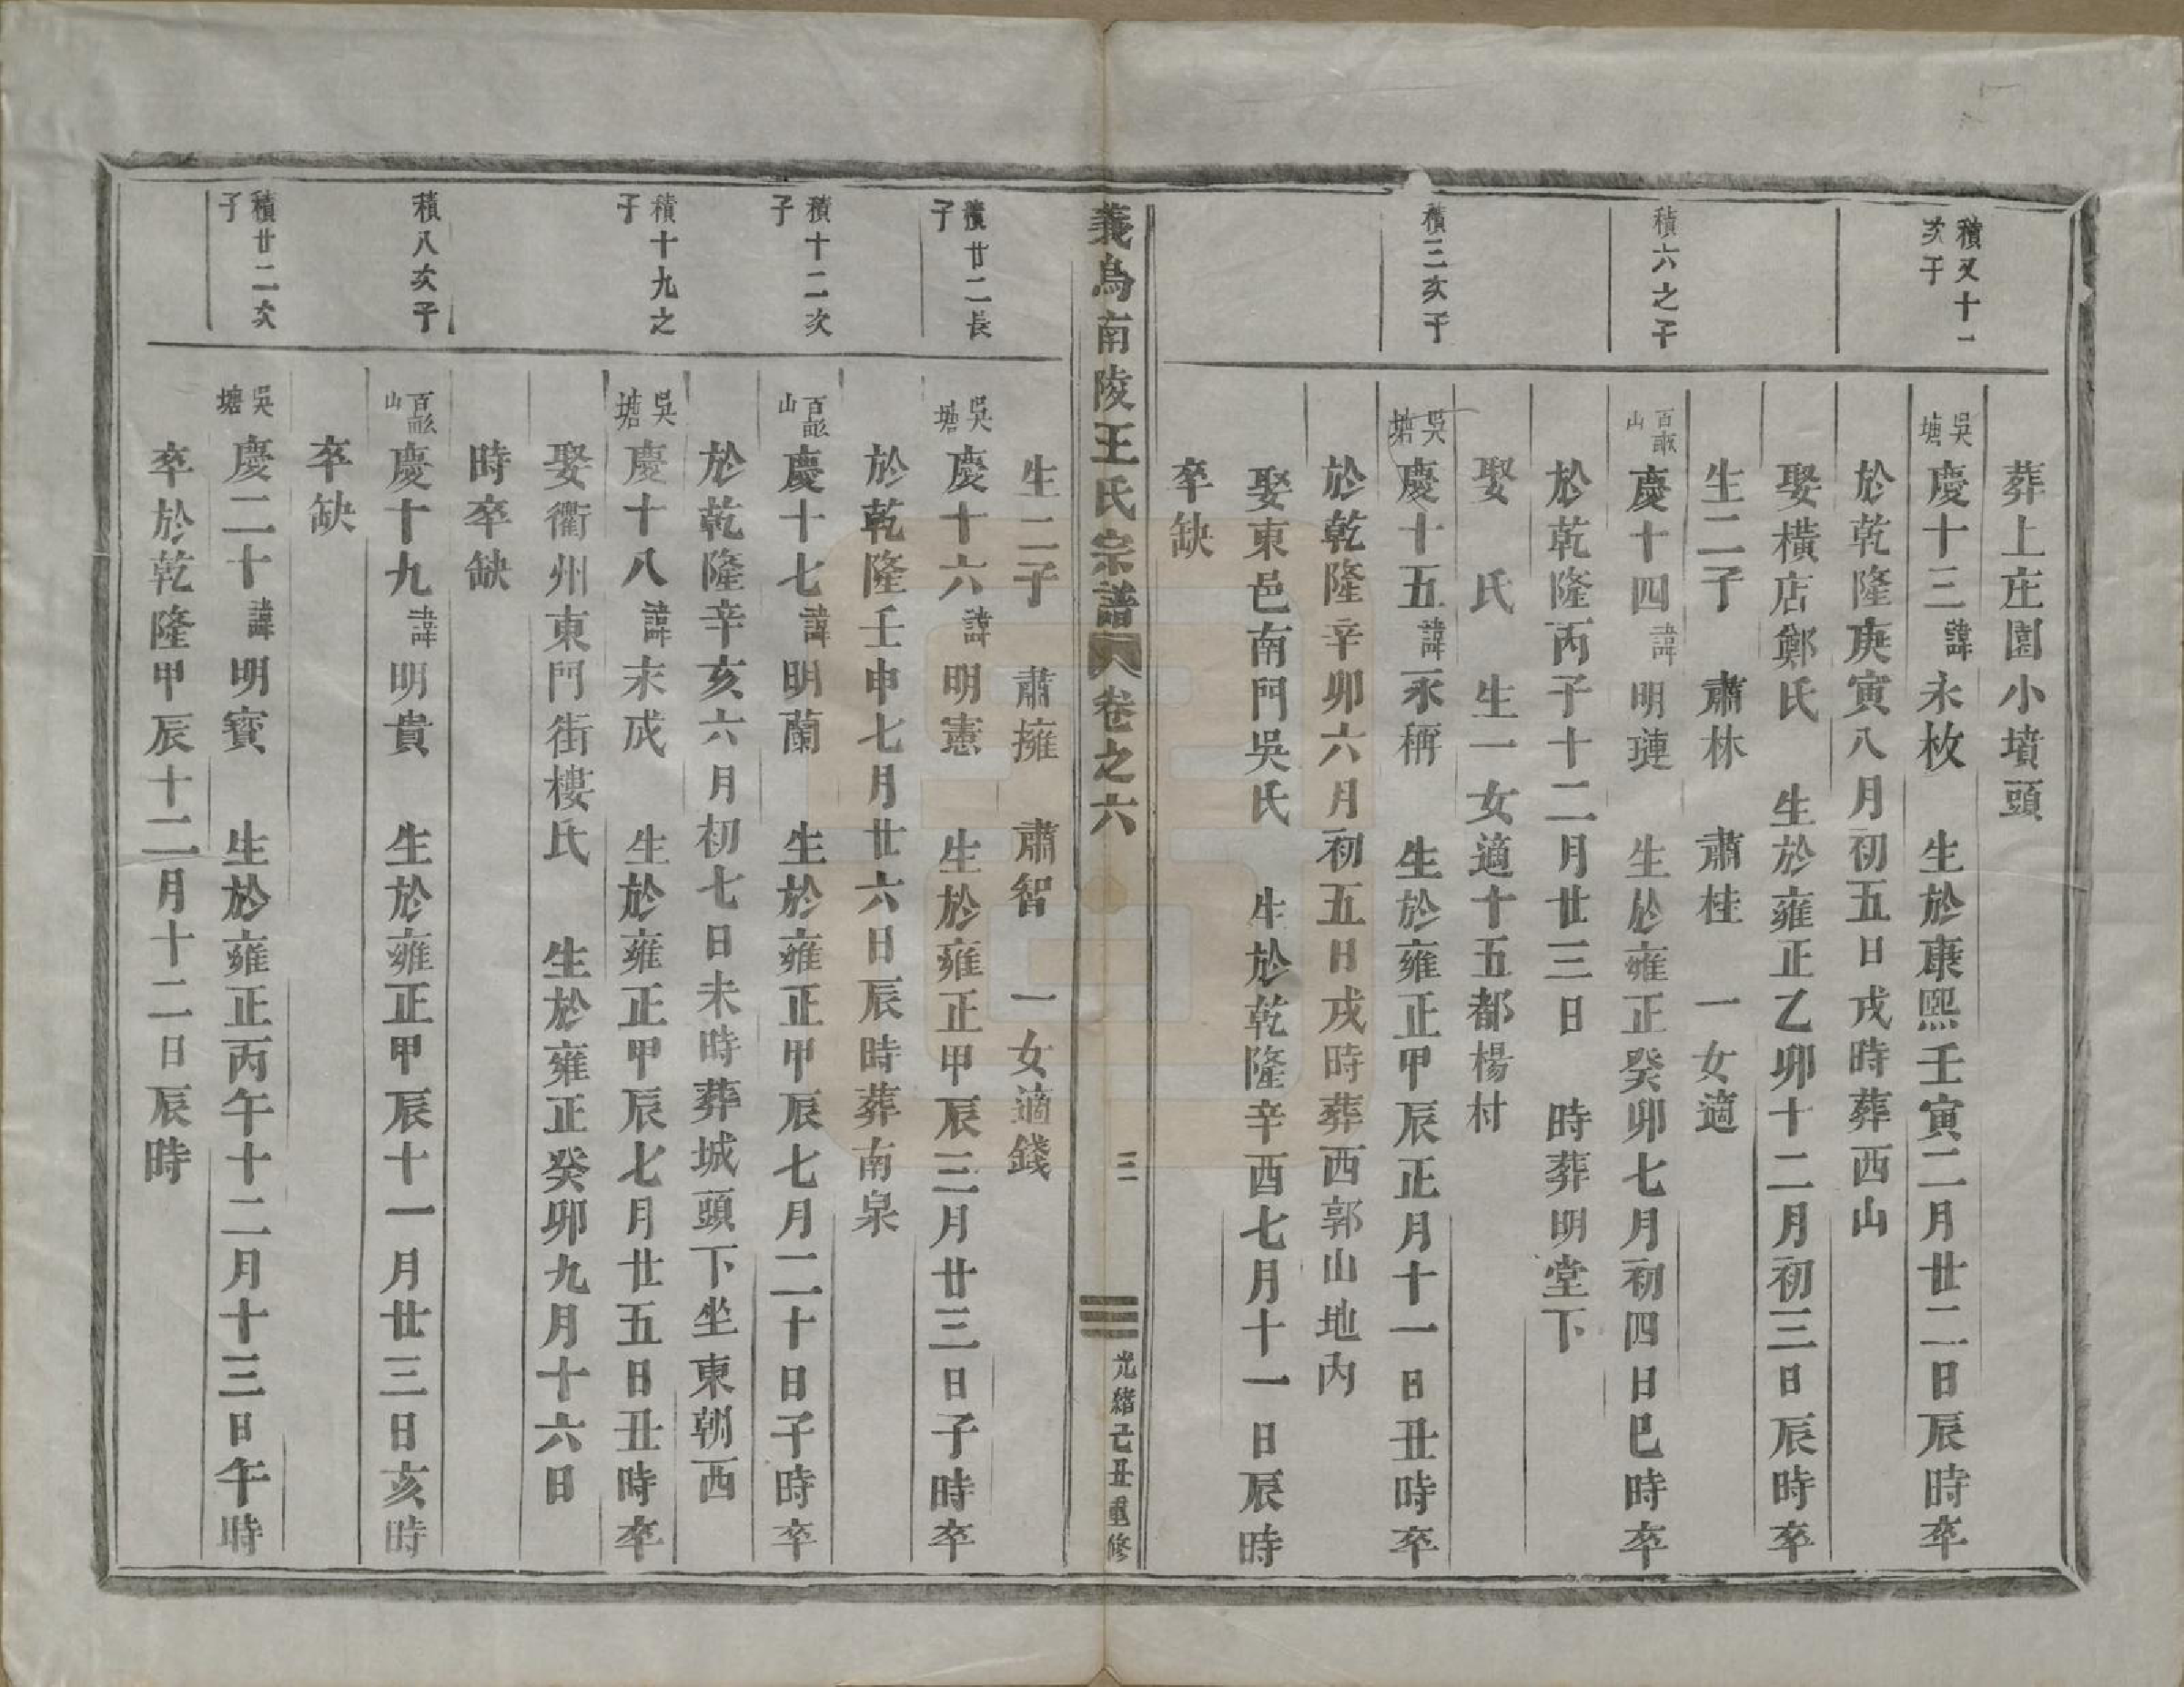 葬上庄園小墳頭
積又十一次子
吳塘慶十三諱永枚 生於康熙壬寅二月廿二日辰時卒
於乾隆庚寅八月初五日戌時葬西山
娶橫店鄭氏 生於雍正乙卯十二月初三日辰時卒
生二子 肅林 肅桂 一女適
積六之子
山慶十四諱明璉 生於雍正癸卯七月初四日巳時卒
於乾隆丙子十二月廿三日 時葬明堂下
娶 氏 生一女適十五都楊村
積三次子
吳塘慶十五諱永稱 生於雍正甲辰正月十一日丑時卒
於乾隆辛卯六月初五日戌時葬西郭山地內
娶東邑南門吳氏 生於乾隆辛酉七月十一日辰時
卒缺
義烏南陵王氏宗譜 卷之六 三 光緒己丑重修
生二子 肅擁 肅智 一女適錢
積廿二長子
吳塘慶十六諱明憲 生於雍正甲辰三月廿三日子時卒
於乾隆壬申七月廿六日辰時葬南泉
積十二次子
山慶十七諱明蘭 生於雍正甲辰七月二十日子時卒
於乾隆辛亥六月初七日未時葬城頭下坐東朝西
積十九之子
吳塘慶十八諱末成 生於雍正甲辰七月廿五日丑時卒
娶衢州東門街樓氏 生於雍正癸卯九月十六日
時卒缺
積八次子
山慶十九諱明貴 生於雍正甲辰十一月廿三日亥時
卒缺
積廿二次子
吳塘慶二十諱明寶 生於雍正丙午十二月十三日午時
卒於乾隆甲辰十二月十二日辰時